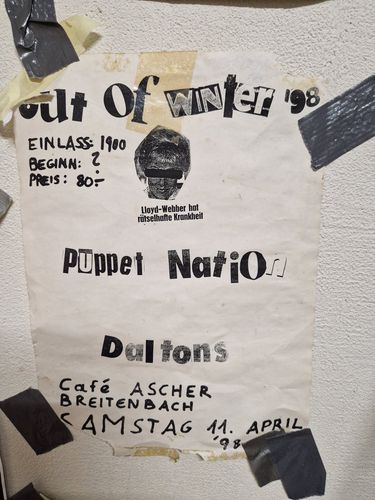 out of winter '98
EINLASS: 1900
BEGINN: ?
PREIS: 80.-
Lloyd-Webber hat
rätselhafte Krankheit
Puppet Nation
Daltons
Café ASCHER
BREITENBACH
SAMSTAG 11. APRIL
'98